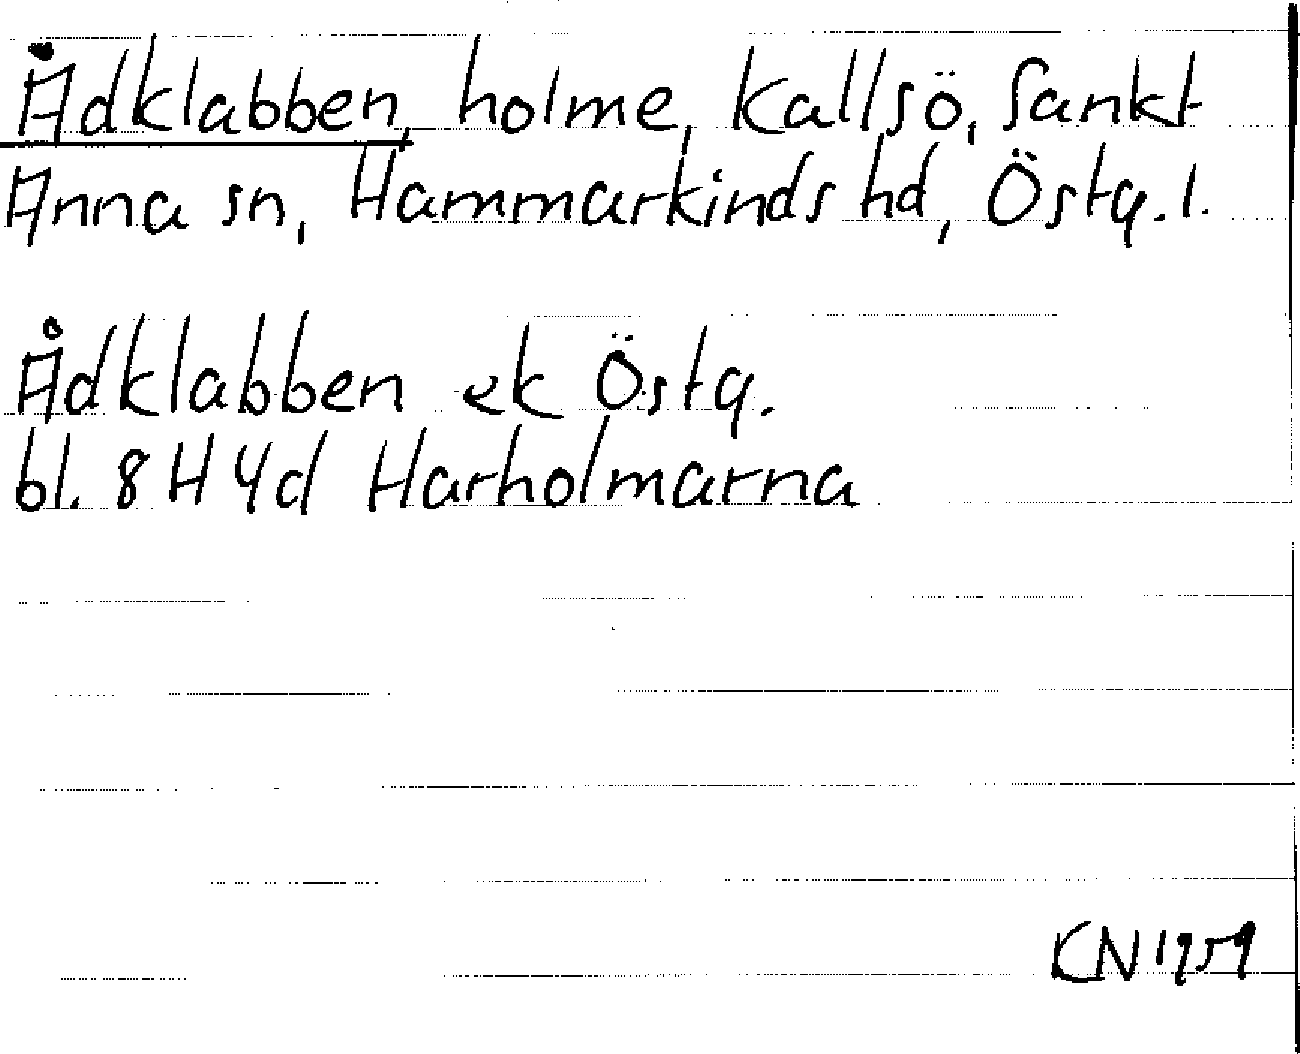 Ådklabben, holme, Kallsö, Sankt
Anna sn, Hammarkinds hd, Östg. l.
Ådklabben ek Östg.
bl. 8 H 4d Harholmarna
KN 1959